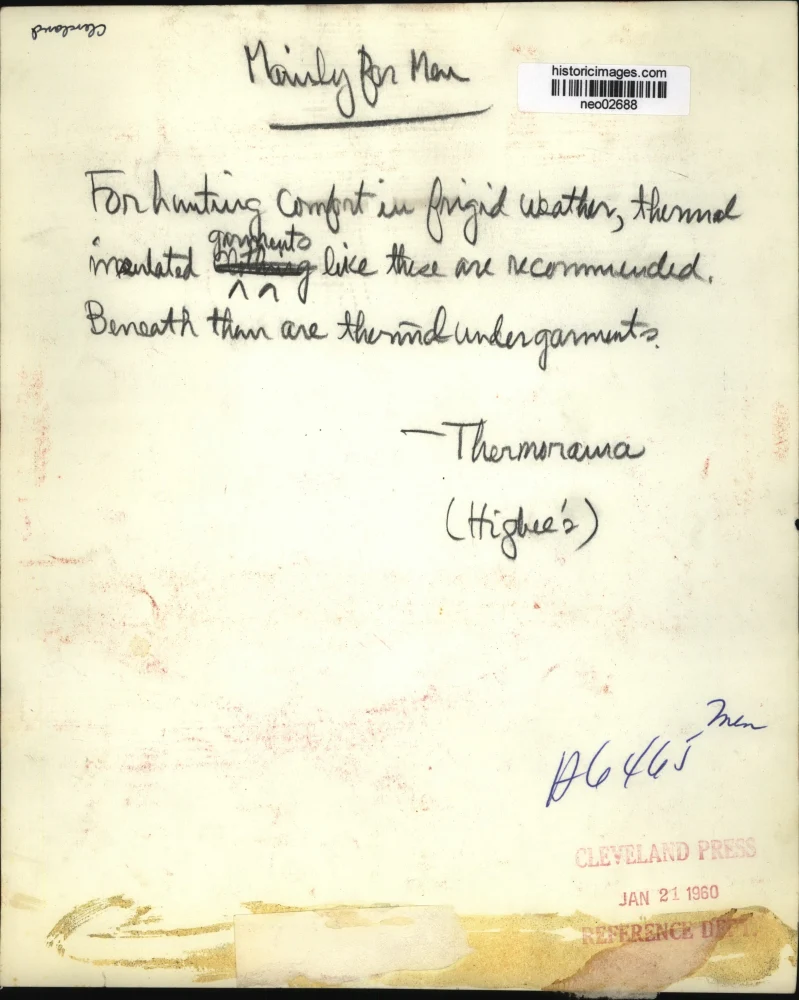 Cleveland
Mainly for Men
historicimages.com
neo02688
For hunting comfort in frigid weather, thermal
garments
insulated clothing like these are recommended.
Beneath them are thermal undergarments.
— Thermorama
(Higbee's)
Men
A6465
CLEVELAND PRESS
JAN 21 1960
REFERENCE DEPT.